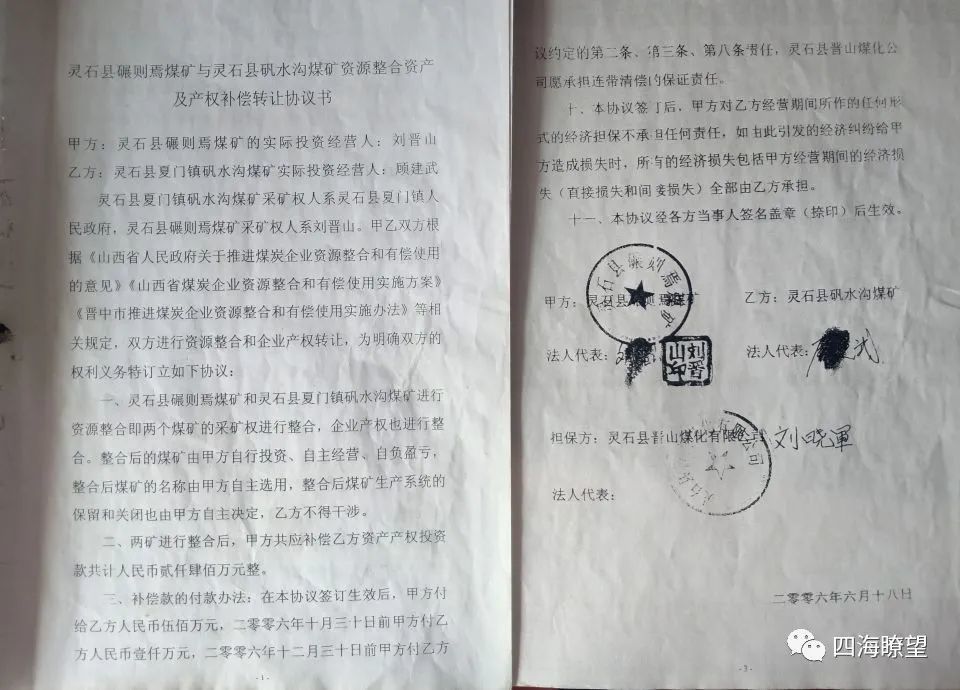 灵石县碾则焉煤矿与灵石县矾水沟煤矿资源整合资产
及产权补偿转让协议书
甲方：灵石县碾则焉煤矿的实际投资经营人：刘晋山
乙方：灵石县夏门镇矾水沟煤矿实际投资经营人：顾建武
灵石县夏门镇矾水沟煤矿采矿权人系灵石县夏门镇人
民政府，灵石县碾则焉煤矿采矿权人系刘晋山。甲乙双方根
据《山西省人民政府关于推进煤炭企业资源整合和有偿使用
的意见》《山西省煤炭企业资源整合和有偿使用实施方案》
《晋中市推进煤炭企业资源整合和有偿使用实施办法》等相
关规定，双方进行资源整合和企业产权转让，为明确双方的
权利义务特订立如下协议：
一、灵石县碾则焉煤矿和灵石县夏门镇矾水沟煤矿进行
资源整合即两个煤矿的采矿权进行整合，企业产权也进行整
合。整合后的煤矿由甲方自行投资、自主经营、自负盈亏，
整合后煤矿的名称由甲方自主选用，整合后煤矿生产系统的
保留和关闭也由甲方自主决定，乙方不得干涉。
二、两矿进行整合后，甲方共应补偿乙方资产产权投资
款共计人民币贰仟肆佰万元整。
三、补偿款的付款办法：在本协议签订生效后，甲方付
给乙方人民币伍佰万元，二零零六年十月三十日前甲方付乙
方人民币壹仟万元，二零零六年十二月三十日前甲方付乙方
-1-
议约定的第二条、第三条、第八条责任，灵石县晋山煤化公
司愿承担连带清偿的保证责任。
十、本协议签订后，甲方对乙方经营期间所作的任何形
式的经济担保不承担任何责任，如由此引发的经济纠纷给甲
方造成损失时，所有的经济损失包括甲方经营期间的经济损
失（直接损失和间接损失）全部由乙方承担。
十一、本协议经各方当事人签名盖章（捺印）后生效。
灵石县碾则焉煤矿
甲方：灵石县碾则焉煤矿
乙方：灵石县矾水沟煤矿
法人代表：
刘晋山印
法人代表：
武
担保方：灵石县晋山煤化有限公司
刘晓军
法人代表：
二零零六年六月十八日
-3-
四海瞭望